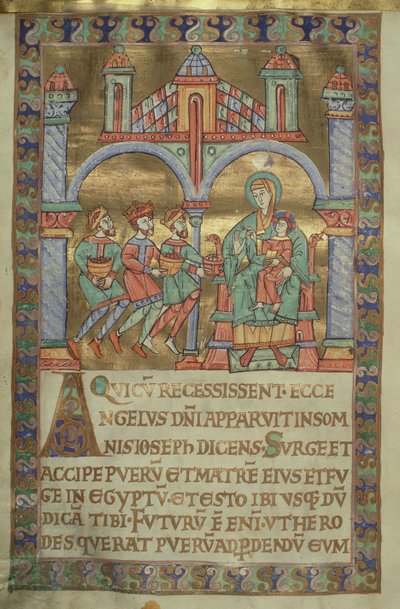 AQUI CŪ RECESSISSENT · ECCE
NGELUS DÑI APPARVIT IN SOM
NIS IOSEPH DICENS · SURGE ET
ACCIPE PVERŪ ET MATRĒ EIUS ET FU
GE IN EGYPTŪ · ET ESTO IBI USQ; DŪ
DICĀ TIBI · FUTURŪ Ē ENĪ · UT HERO
DES QUERAT PVERŪ AD PDENDŪ EUM